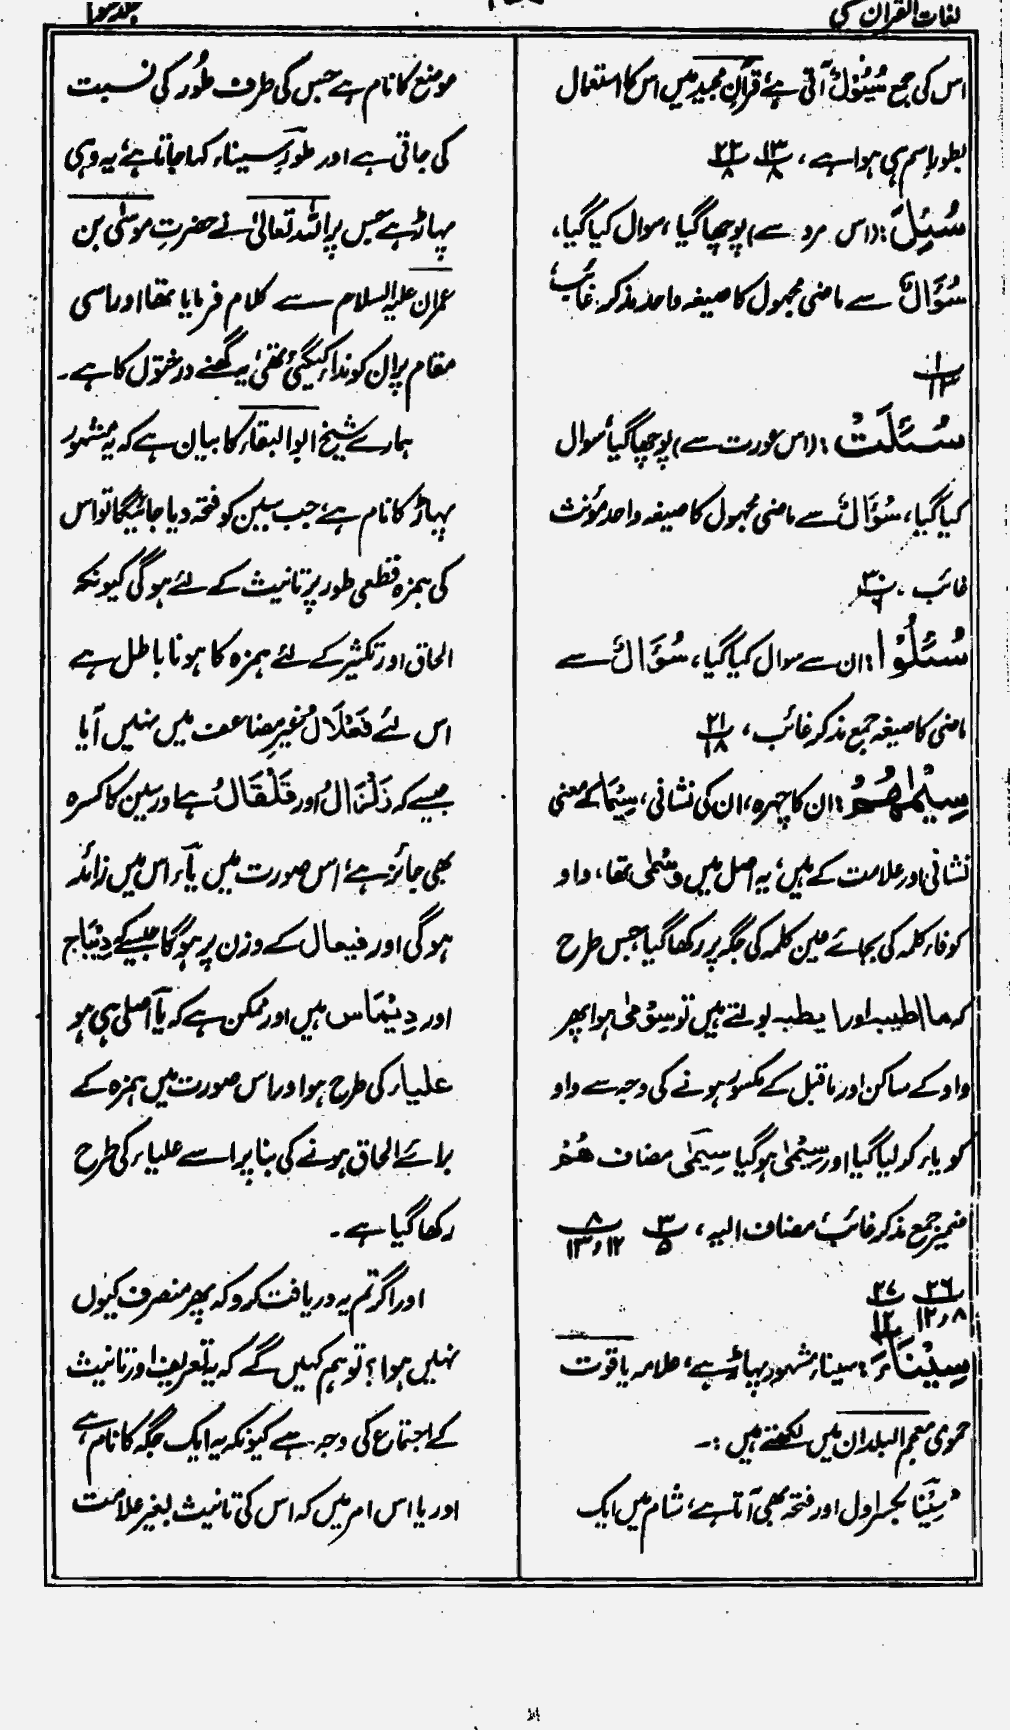 لغات القرآن
جلد سوم
اس کی جمع سُیُوْلٌ آتی ہے، قرآن مجید میں اس کا استعمال
بطور اسم ہی ہوا ہے، ۱۳/۸ ۲۲/۸
سُئِلَ :(اس مرد سے) پوچھا گیا، سوال کیا گیا،
سُؤَالٌ سے ماضی مجہول کا صیغہ واحد مذکر غائب
۱/۱۳
سُئِلَتْ :(اس عورت سے) پوچھا گیا، سوال
کیا گیا، سُؤَالٌ سے ماضی مجہول کا صیغہ واحد مؤنث
غائب ، ۳۰/۶
سُئِلُوْا : ان سے سوال کیا گیا، سُؤَالٌ سے
ماضی کا صیغہ جمع مذکر غائب، ۲۱/۱۸
سِیْمٰھُمْ : ان کا چہرہ، ان کی نشانی، سِیْمَا کے معنی
نشانی اور علامت کے ہیں، یہ اصل میں وسْمٰی تھا، واو
کو فاء کلمہ کی بجائے عین کلمہ کی جگہ پر رکھا گیا جس طرح
کہ ما اطیبہ اور ایطبہ بولتے ہیں تو سِوْمٰی ہوا پھر
واو کے ساکن اور ماقبل کے مکسور ہونے کی وجہ سے واو
کو یاء کر لیا گیا اور سِیْمٰی ہو گیا سِیمٰی مضاف ھُمْ
ضمیر جمع مذکر غائب، مضاف الیہ، ۳/۵ ۸/۱۲،۱۳
۲۶/۸،۱۲ ۲۷/۱۲
سِیْنَآءَ : سیناء مشہور پہاڑ ہے، علامہ یاقوت
حموی معجم البلدان میں لکھتے ہیں :۔
"سِیْنا بکسر اول اور فتحہ بھی آتا ہے، شام میں ایک
موضع کا نام ہے جس کی طرف طُور کی نسبت
کی جاتی ہے اور طور سیناء کہا جاتا ہے، یہ وہی
پہاڑ ہے جس پر اللہ تعالیٰ نے حضرتِ موسٰی بن
عمران علیہ السلام سے کلام فرمایا تھا اور اسی
مقام پر ان کو نداء کی گئی تھی، یہ گھنے درختوں کا ہے۔
ہمارے شیخ ابو البقاء کا بیان ہے کہ یہ مشہور
پہاڑ کا نام ہے، جب سین کو فتحہ دیا جائیگا تو اس
کی ہمزہ قطعی طور پر تانیث کے لئے ہو گی کیونکہ
الحاق اور تکثیر کے لئے ہمزہ کا ہونا باطل ہے
اس لئے فَعْلَالٌ غیر مضاعف میں نہیں آیا
جیسے کہ زَلْزَالٌ اور قَلْقَالٌ ہے اور سین کا کسرہ
بھی جائز ہے، اس صورت میں یآء اس میں زائد
ہو گی اور فیعال کے وزن پر ہو گا جیسے کے دِیْبَاج
اور دِیْمَاس میں اور ممکن ہے کہ یآ اصلی ہی ہو
علیاء کی طرح ہوا اور اس صورت میں ہمزہ کے
برائے الحاق ہونے کی بنا پر اسے علیاء کی طرح
رکھا گیا ہے ۔
اور اگر تم یہ دریافت کرو کہ پھر منصرف کیوں
نہیں ہوا؟ تو ہم کہیں گے کہ یہ تعریف اور تانیث
کے اجتماع کی وجہ ہے کیونکہ یہ ایک جگہ کا نام ہے
اور یا اس امر میں کہ اس کی تانیث بغیر علامت